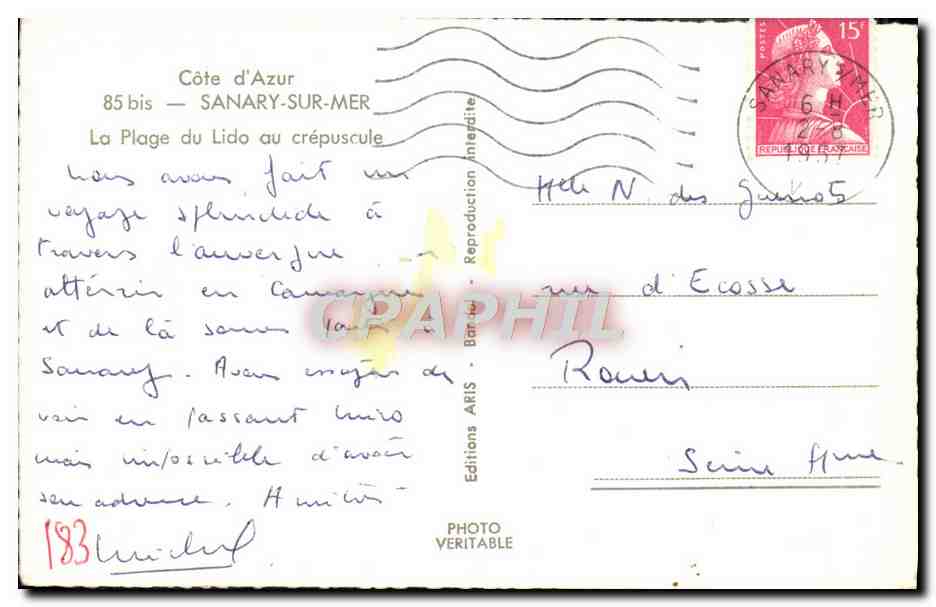 Côte d'Azur
85 bis — SANARY-SUR-MER
La Plage du Lido au crépuscule
nous avons fait un
voyage splendide à
travers l'auvergne
attérir en Camargue
et de là sommes
Sanary. Avons essayés de
voir en passant
mais impossible d'avoir
son adresse. Amitiés
183 Michel
Editions ARIS - Bandol - Reproduction interdite
PHOTO
VERITABLE
CPARPHIL
POSTES
15F
REPUBLIQUE FRANCAISE
SANARY S/MER
6 H
2-8
1957
Melle N. des
rue d'Ecosse
Rouen
Seine Ame